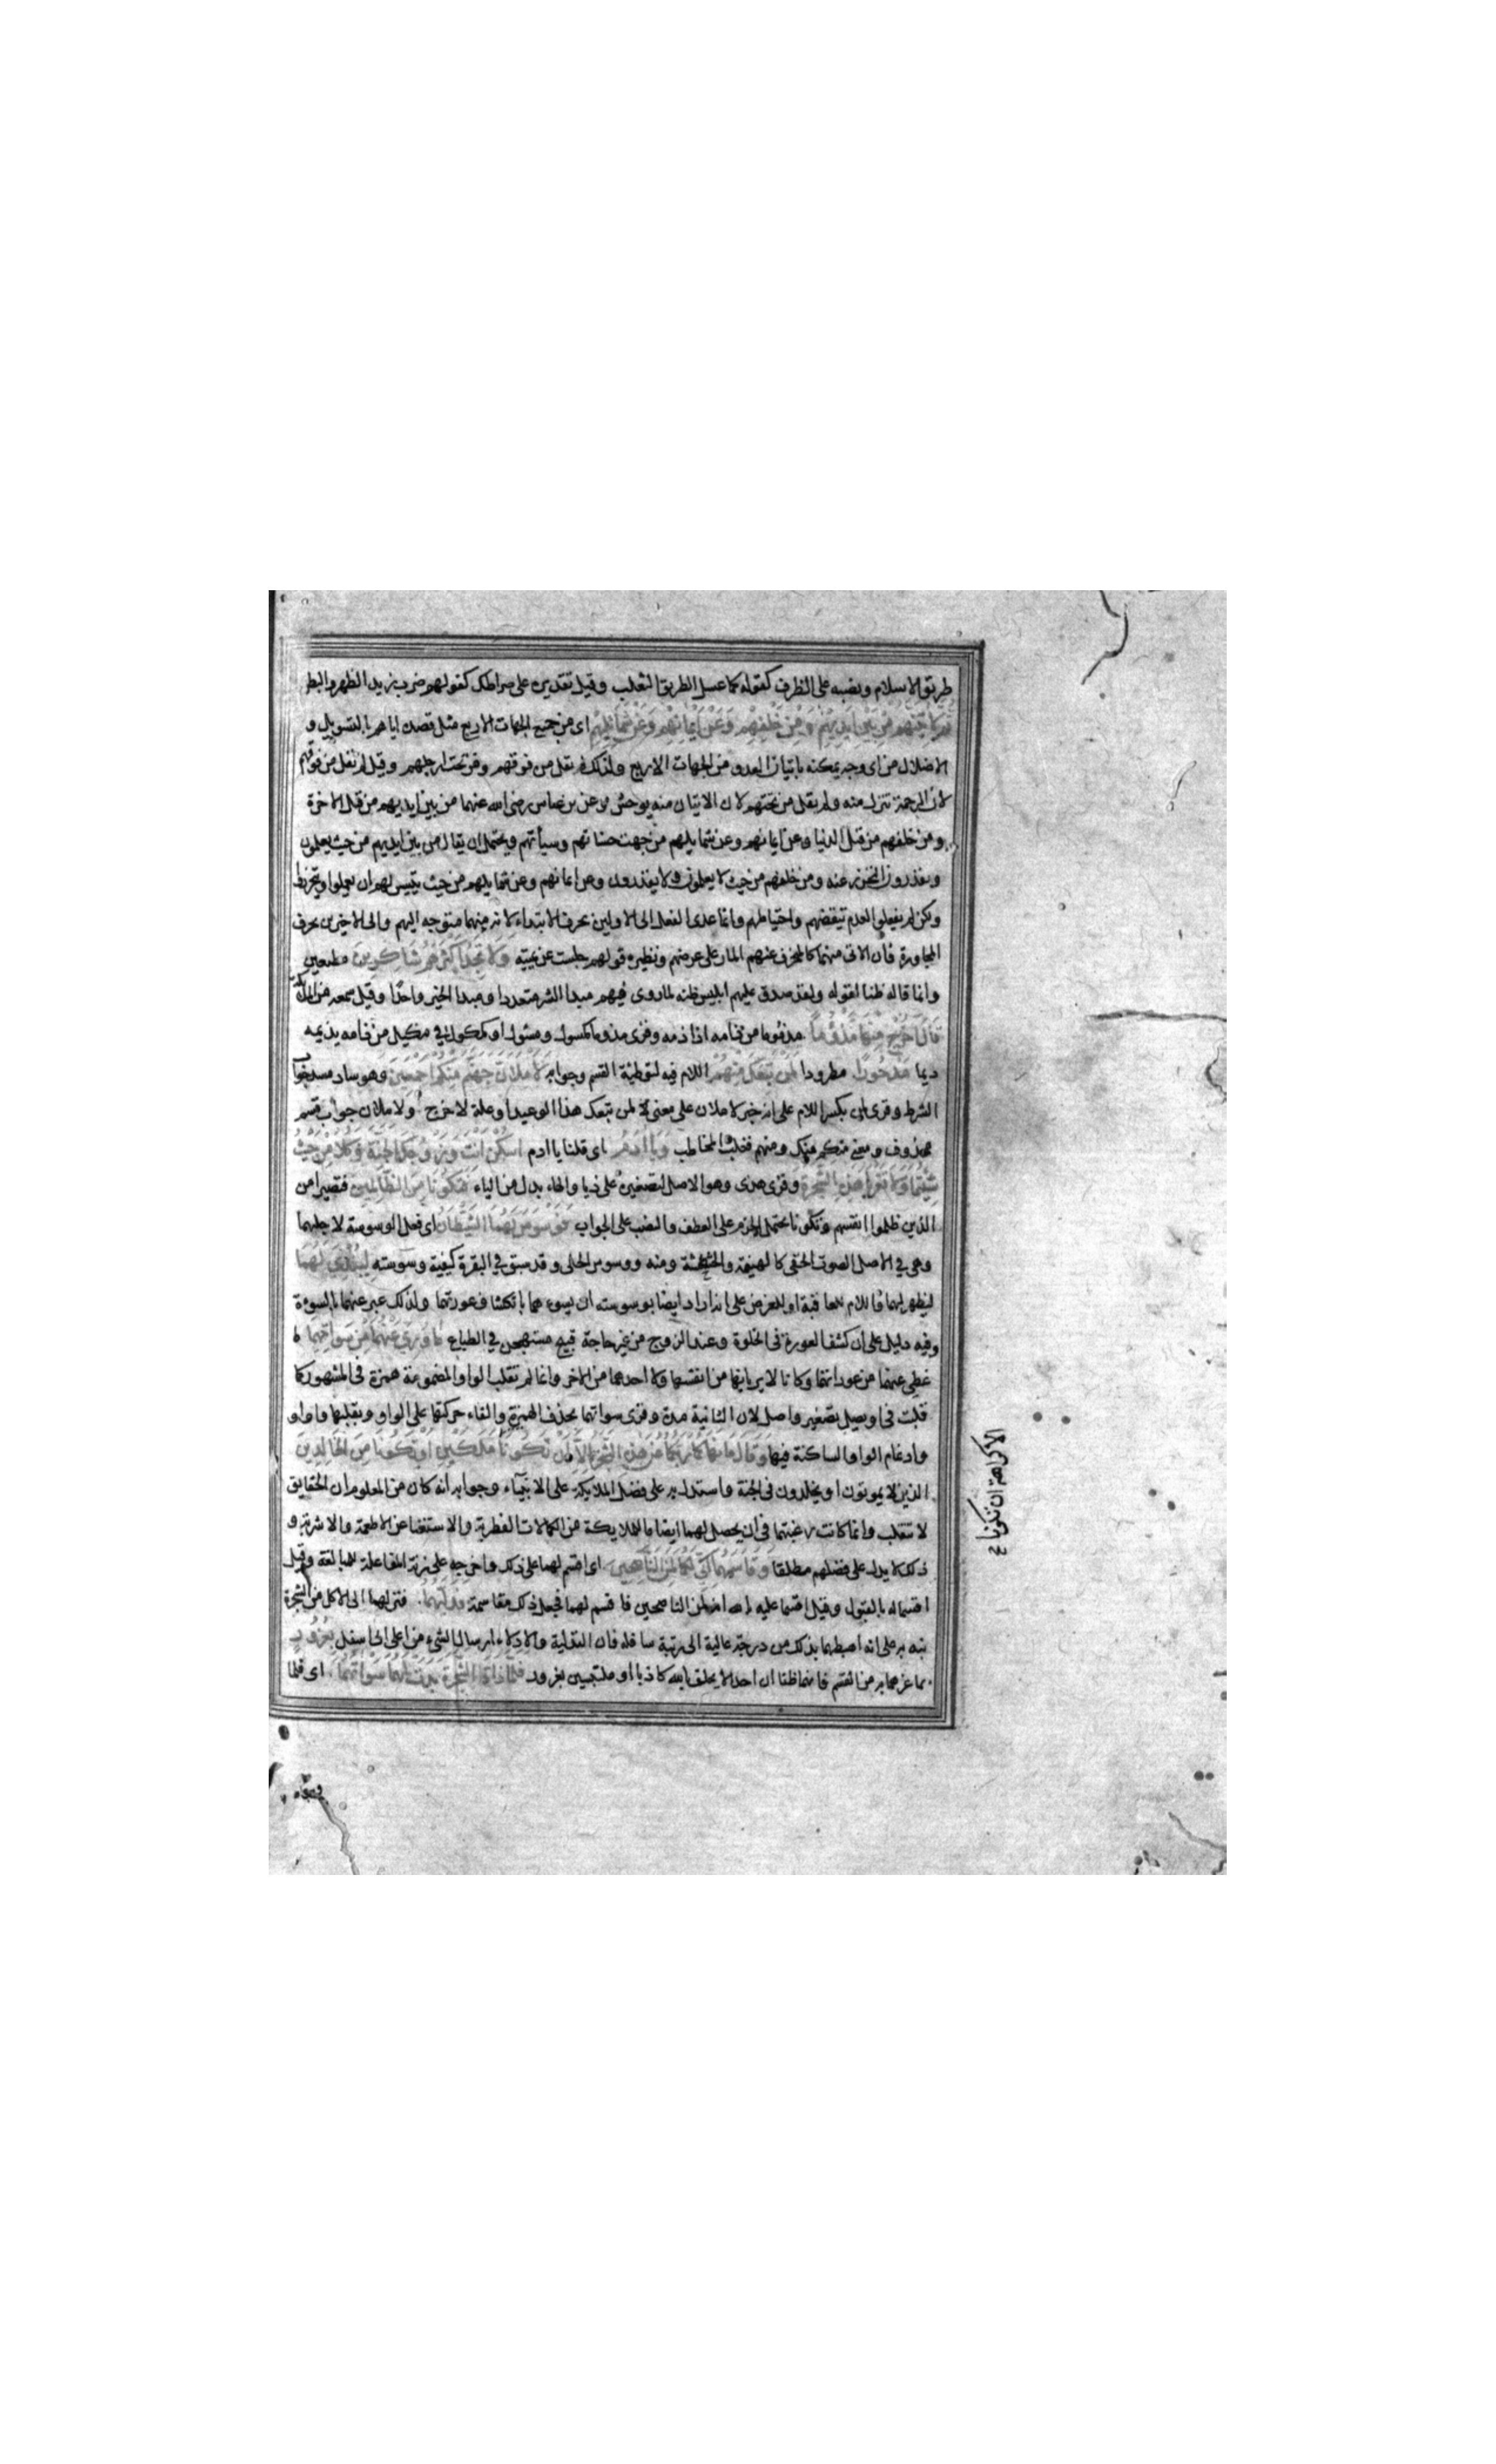 طريق الاسلام ونصبه على الظرف كقوله كما عسل الطريق الثعلب وقيل تقديره على صراطك كقولهم ضرب زيد الظهر والبطن
ثم لاتينهم من بين ايديهم ومن خلفهم وعن ايمانهم وعن شمائلهم اى من جميع الجهات الاربع مثل قصده اياهم بالتسويل و
الاضلال من اى وجه يمكنه باتيان العدو من الجهات الاربع ولذلك لم يقل من فوقهم ومن تحت ارجلهم وقيل لم يقل من فوقهم
لان الرحمة تنزل منه ولم يقل من تحتهم لان الاتيان منه يوحش وعن بن عباس رضى الله عنهما من بين ايديهم من قبل الاخرة
ومن خلفهم من قبل الدنيا وعن ايمانهم وعن شمايلهم من جهت حسناتهم وسيأتهم ويحتمل ان يقال من بين ايديهم من حيث يعلمون
ويقدرون التحرز عنه ومن خلفهم من حيث لا يعلمون ولا يقدرون وعن ايمانهم وعن شمايلهم من حيث يتيسر لهم ان يعملوا ويتحرزوا
ولكن لم يفعلوا لعدم تيقضهم واحتياطهم وانما عدى الفعل الى الاولين بحرف الابتداء لانه منهما متوجه اليهم والى الاخيرين بحرف
المجاورة فان الاتى منهما كالمنحرف عنهم المار على عرضهم ونظيره قولهم جلست عن يمينه ولا تجد اكثرهم شاكرين مطيعين
وانما قاله ظنا لقوله ولقد صدق عليهم ابليس ظنه لما روى فيهم مبدا الشر متعددا ومبدا الخير واحدا وقيل سمعه من الملائكة
قال اخرج منها مذؤما مذؤما من ذامه اذا ذمه وقرى مذوما كمسول ومسئول او ككول في مكيل من ذامه يذيمه
ذيما مدحورا مطرودا لمن تبعك منهم اللام فيه لتوطئة القسم وجوابه لاملان جهنم منكم اجمعين وهو ساد مسد جواب
الشرط وقرى لمن بكسر اللام على انه خبر لاملان على معنى لمن تبعك هذا الوعيد او علة لاخرج ولاملان جواب قسم
محذوف ومعنى منكم منك ومنهم فغلب المخاطب ويا ادم اى قلنا يا ادم اسكن انت وزوجك الجنة وكلا من حيث
شيتما ولا تقربا هذه الشجرة وقرى هذى وهو الاصل لتصغيره على ذيا والهاء بدل من الياء فتكونا من الظالمين فتصيرا من
الذين ظلموا انفسهم وتكونا يحتمل الجزم على العطف والنصب على الجواب فوسوس لهما الشيطان اى فعل الوسوسة لاجلهما
وهى في الاصل الصوت الخفى كالهينمة والخشخشة ومنه ووسوس الحلى وقد سبق في البقرة كيفية وسوسته ليبدى لهما
ليظهر لهما فاللام للعاقبة او للغرض على انه اراد ايضا بوسوسته ان يسوءهما بانكشاف عورتهما ولذلك عبر عنهما بالسوءة
وفيه دليل على ان كشف العورة فى الخلوة وعند الزوج من غير حاجة قبيح مستهجن في الطباع ما ووري عنهما من سواتهما ما
غطى عنهما من عوراتهما وكانا لا يريانها من انفسهما ولا احدهما من الاخر وانما لم تقلب الواو المضمومة همزة فى المشهور كما
قلبت فى اويصل تصغير واصل لان الثانية مدة وقرى سواتهما بحذف الهمزة والقاء حركتها على الواو وبقلبها واوا و
وادغام الواو الساكنة فيها وقال ما نهاكما ربكما عن هذه الشجرة الا ان تكونا ملكين او تكونا من الخالدين
الذين لا يموتون او يخلدون فى الجنة واستدل به على فضل الملايكة على الانبياء وجوابه انه كان من المعلوم ان الحقايق
لا تنقلب وانما كانت رغبتهما فى ان يحصل لهما ايضا ما للملايكة من الكمالات الفطرية والاستغنا عن الاطعمة والاشربة و
ذلك لا يدل على فضلهم مطلقا وقاسمهما انى لكما لمن الناصحين اى اقسم لهما على ذلك واخرجه على زنة المفاعلة للمبالغة وقيل
اقسما له بالقبول وقيل اقسما عليه بالله انه لمن الناصحين فاقسم لهما فجعل ذلك مقاسمة فدليهما فنزلهما الى الاكل من الشجرة
نبه به على انه اهبطهما بذلك من درجة عالية الى رتبة سافله فان التدلية والادلاء ارسال الشيء من اعلى الى اسفل بغرور
بما غرهما به من القسم فانهما ظنا ان احدا لا يحلف بالله كاذبا او ملتبسين بغرور فلما ذاقا الشجرة بدت لهما سواتهما اى فلما
الا كراهة ان تكونا